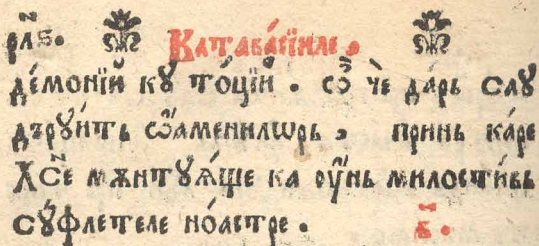 рл҃ѕ. Катава́сїиле.
де́монїй кꙋ то́цїй. ѡ҆̀ че да́рь слꙋ
дърꙋи́ть ѡ҆аменилѡрь, принь ка́ре
ꙟ҆се мѫнтꙋѧ́ще ка ᲂу҆нь милости́вь
сꙋ́флетеле ноа́стре. в҃.